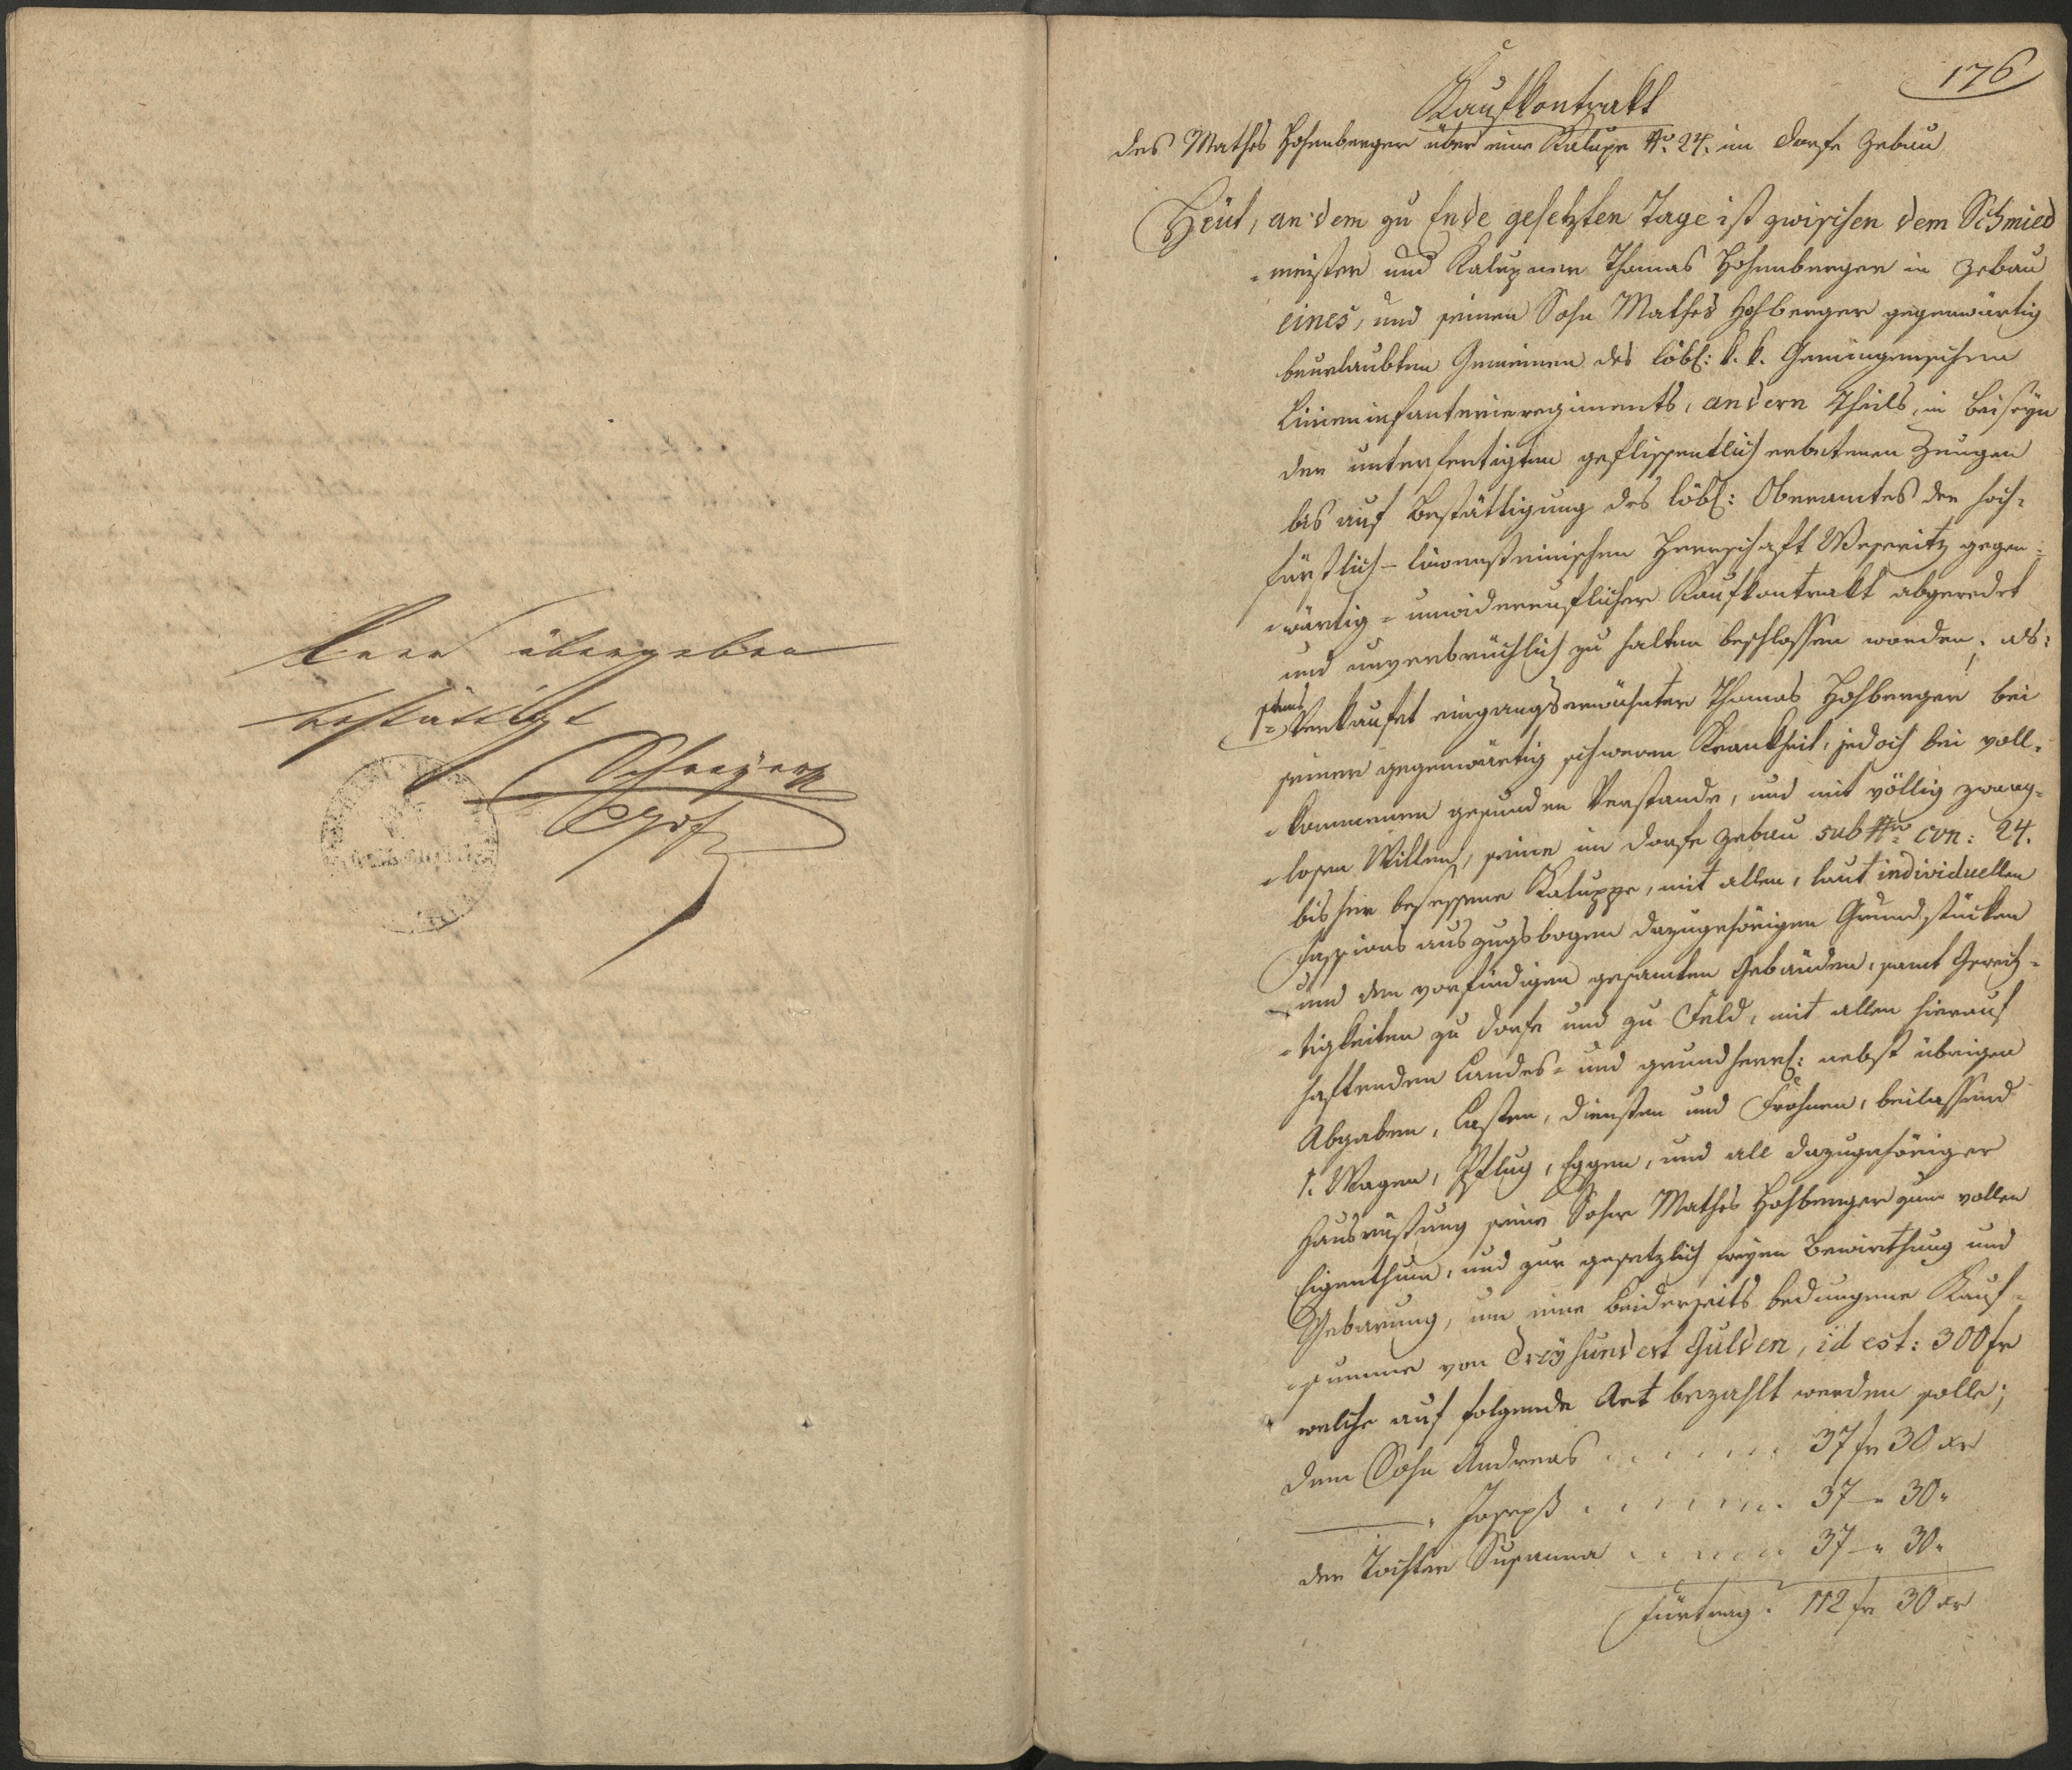 Leer übergeben
bestättigt
Schreyer
176
Kaufkontrakt
des Mathes Hohenberger über eine Kalupe No. 24. im Dorfe Zebau
Heut, an dem zu Ende gesetzten Tage ist zwischen dem Schmied
-meister und Kalupner Thomas Hohenberger in Zebau
eines, und seinen Sohn Mathes Hohberger gegenwärtig
beurlaubten Gemeinen des löbl: k. k. Gemingenischen
Linieninfanterieregiments, andern Theils, in Beiseyn
der unterfertigten geflissentlich erbetenen Zeugen
bis auf Bestättigung des löbl: Oberamtes der hoch-
fürstlich-löwensteinischen Herrschaft Weseritz gegen-
-wärtig-unwiderruflicher Kaufkontrakt abgeredet
und unverbrüchlich zu halten beschlossen worden; als:
1tens Verkaufet eingangserwähnter Thomas Hohberger bei
seiner gegenwärtig schweren Krankheit, jedoch bei voll-
-kommenen gesunden Verstande, und mit völlig zwang-
-losen Willen, seine im Dorfe Zebau sub Nro con: 24.
bisher besessene Kaluppe, mit allen, laut individuellen
Fassions auszugsbogen dazugehörigen Grundstücken
und den vorfindigen gesamten Gebäuden, samt Gerech-
-tigkeiten zu Dorfe und zu Feld, mit allen hierauf
haftenden Landes- und grundherrl: nebst übrigen
Abgaben, Lasten, Diensten und Frohnen, beilassend
1. Wagen, Pflug, Eggen, und all dazugehöriger
Hausrüstung seine Sohne Mathes Hohberger zum vollen
Eigenthum, und zur gesetzlich freyen Bewirthung und
Gebarung, um eine beiderseits bedungene Kauf-
-summe von Dreyhundert Gulden, id est: 300 fr
welche auf folgende Art bezahlt werden solle;
Dem Sohn Andreas . . . . . . 37 fr 30 xr
" Joseph . . . . . . 37 - " 30 "
der Tochter Susanna . . . . . . 37 - " 30 "
Fürtrag: 112 fr 30 xr